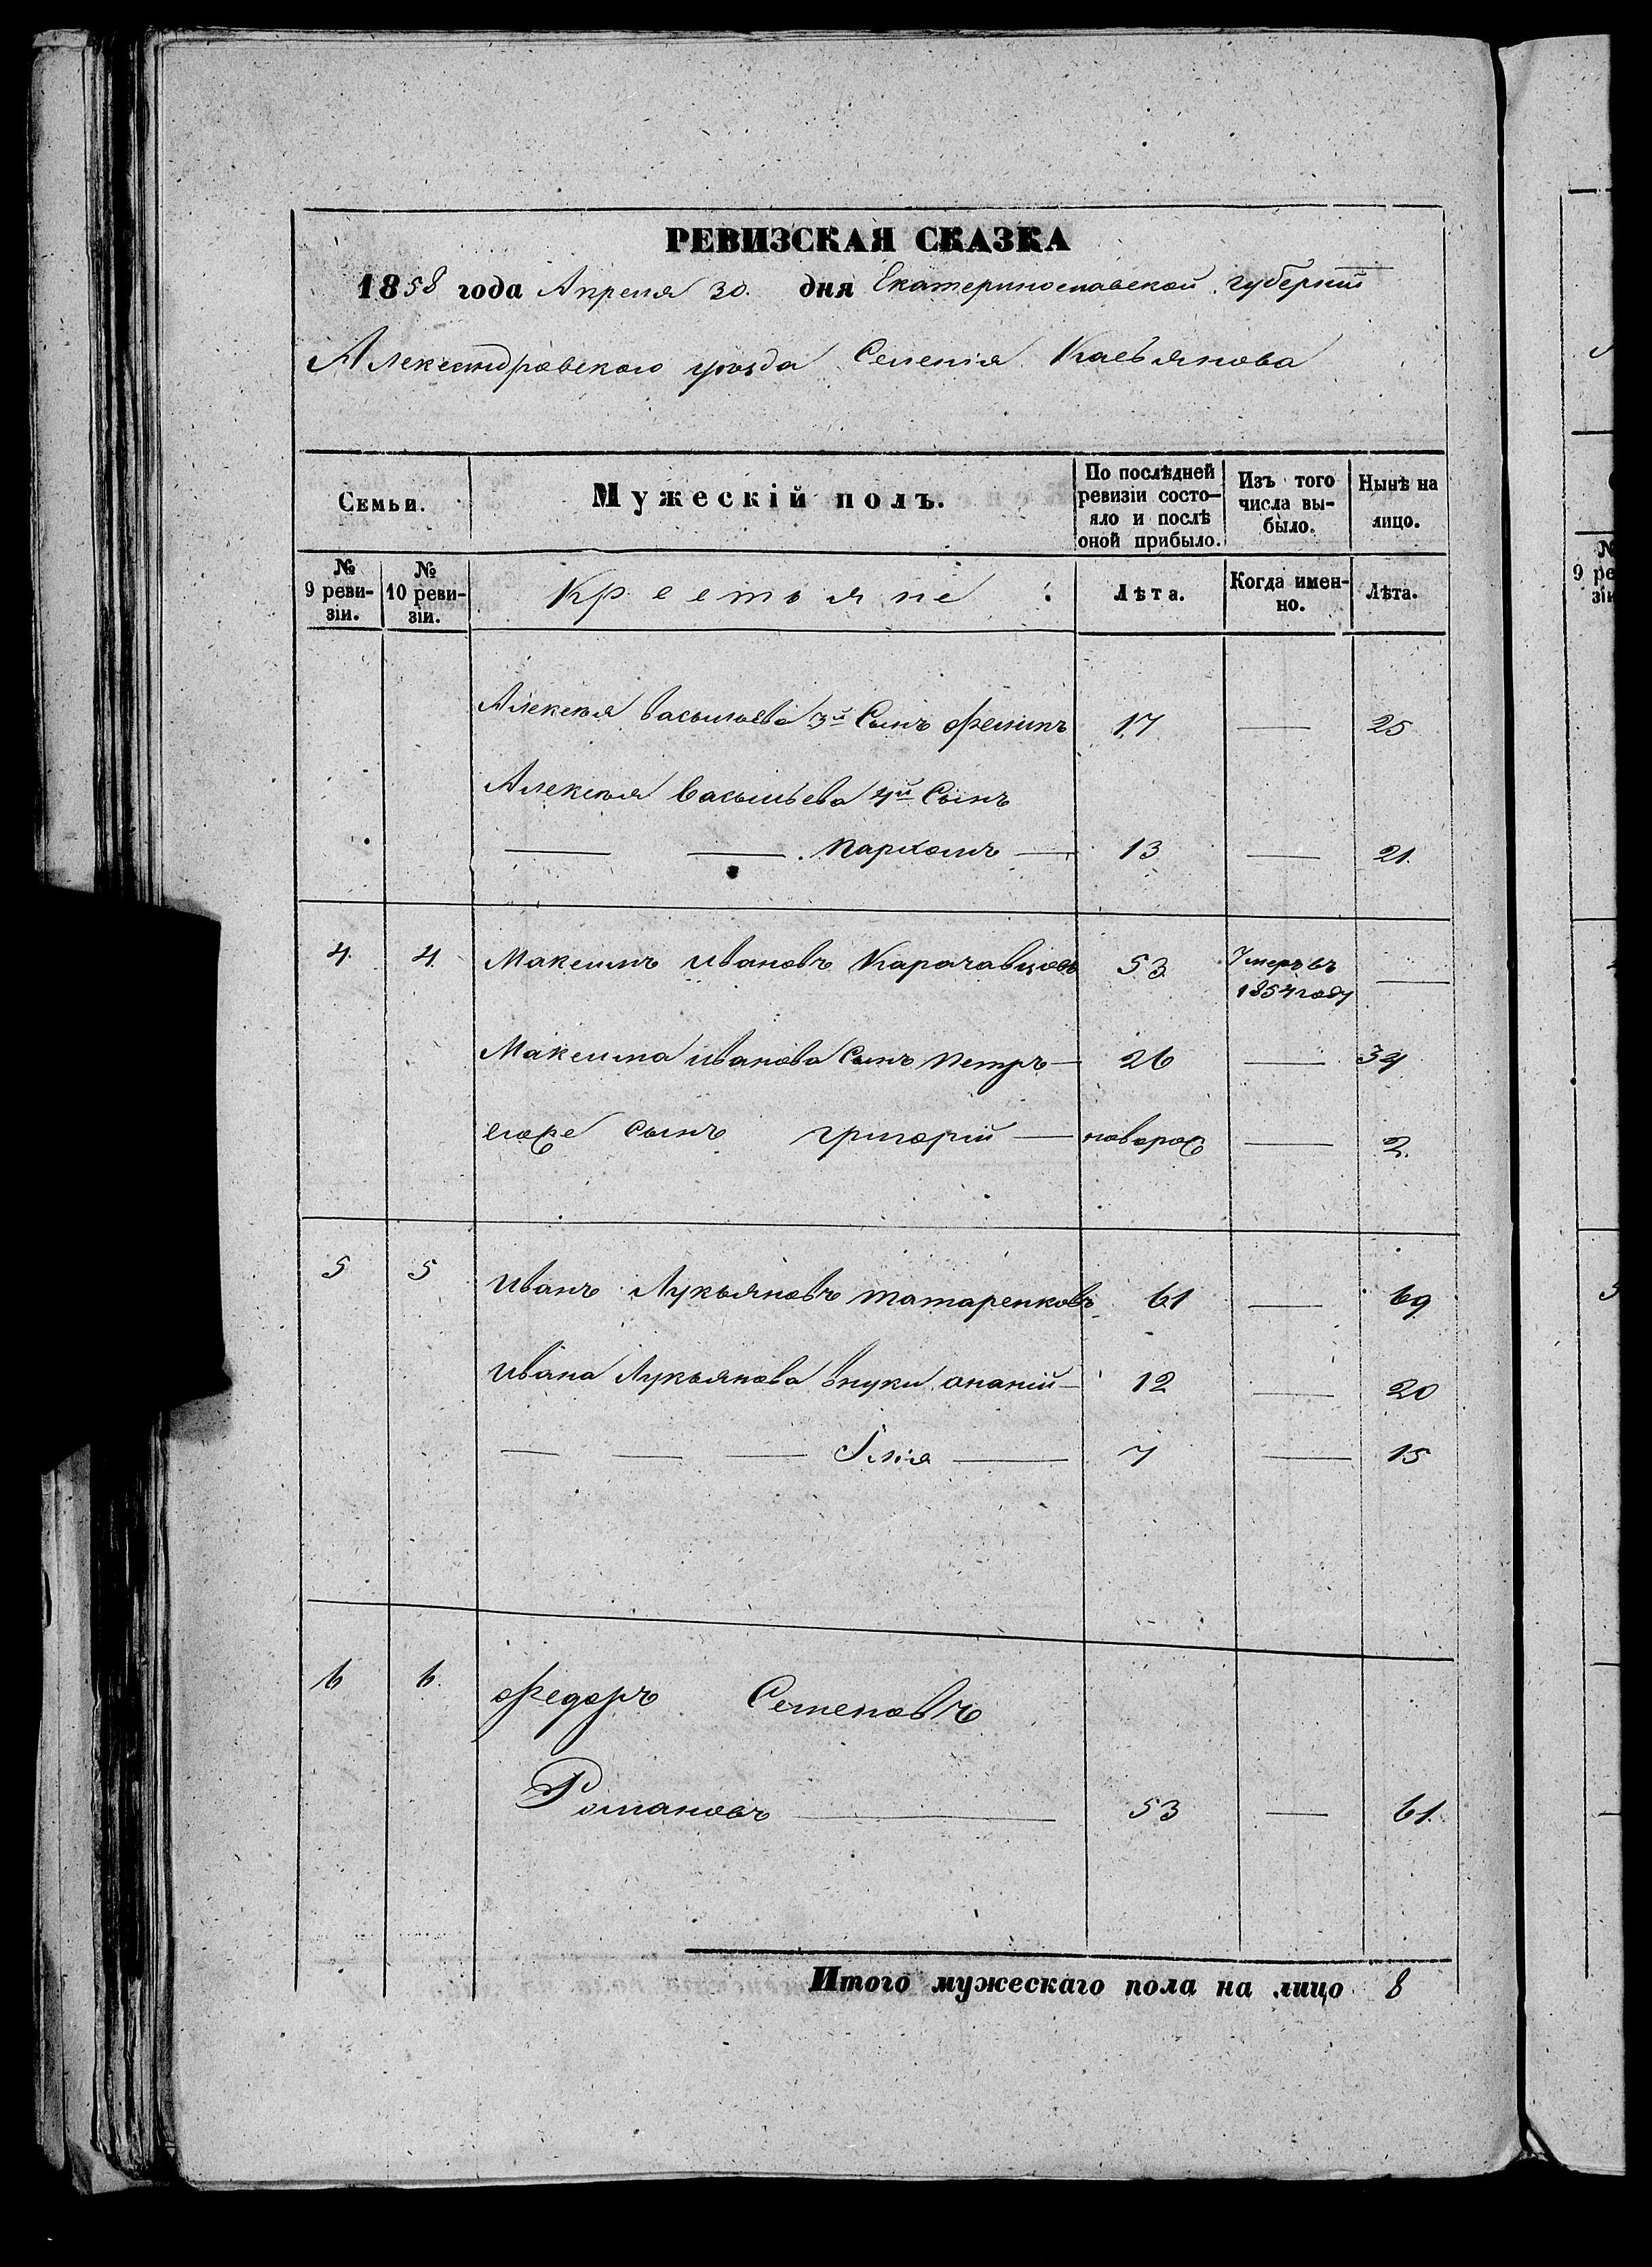 РЕВИЗСКАЯ СКАЗКА
1858 года Апреля 30. дня Екатеринославской губерніи
Александровского уѣзда Селенія Касьянова
Семьи. Мужескій полъ. По послѣдней ревизіи состо-яло и послѣ оной прибыло. Изъ того числа вы-было. Нынѣ на лицо.
№ 9 реви-зіи. № 10 реви-зіи. Крестьяне: Лѣта. Когда имен-но. Лѣта.
Алексѣя Васильева 3й Сынъ Филипъ 17 — 25
Алексѣя Васильева 4й Сынъ
— — Пархомъ — 13 — 21.
4. 4. Максимъ Ивановъ 53 Умеръ въ —
1854 году
Максима Иванова Сынъ Петръ — 26 — 34
егоже сынъ григорій — новорож — 2.
5 5 Иванъ Лукьяновъ Татаренковъ 61 — 69
Ивана Лукьянова внуки ананій — 12 — 20
— — — Ілія — 7 — 15
6 6. Федоръ Семеновъ
Романовъ — 53 — 61.
Итого мужескаго пола на лицо 8
№
9 ре
зіи